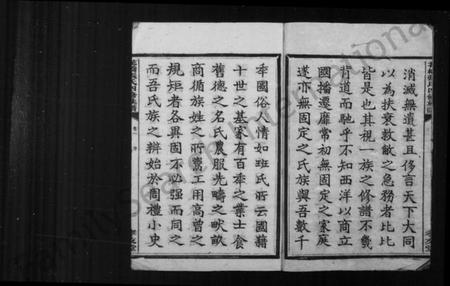 消滅無遺甚且侈言天下大同
以為扶衰救敝之急務者比比
皆是也其視一族之修譜不幾
背道而馳乎不知西洋以商立
國播遷靡常初無固定之家庭
遂亦無固定之氏族與吾數千
年國俗人情如班氏所云國藉
十世之基家有百年之業士食
舊德之名氏農服先疇之畎畝
商循族姓之所鬻工用高曾之
規矩者各異固不必強而同之
而吾氏族之辨始於周禮小史